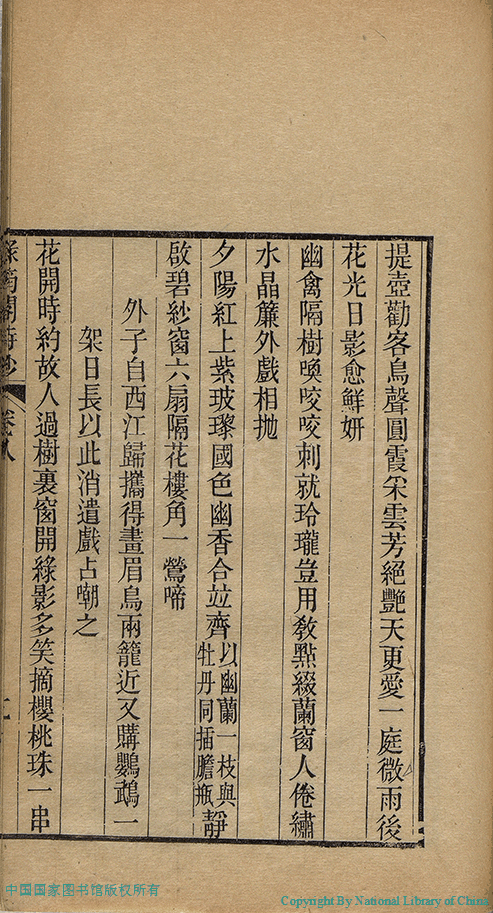 提壺勸客鳥聲圓霞采雲芳絕艷天更愛一庭微雨後
花光日影愈鮮妍
幽禽隔樹喚咬咬刺就玲瓏豈用敎點綴蘭窗人倦繡
水晶簾外戲相抛
夕陽紅上紫玻瓈國色幽香合竝齊以幽蘭一枝與牡丹同插膽瓶靜
啟碧紗窗六扇隔花樓角一鶯啼
外子自西江歸攜得畫眉鳥兩籠近又購鸚鵡一
架日長以此消遣戲占嘲之
花開時約故人過樹裏窗開綠影多笑摘櫻桃珠一串
綠筠閣詩鈔 卷八
中国国家图书馆版权所有
Copyright By National Library of China